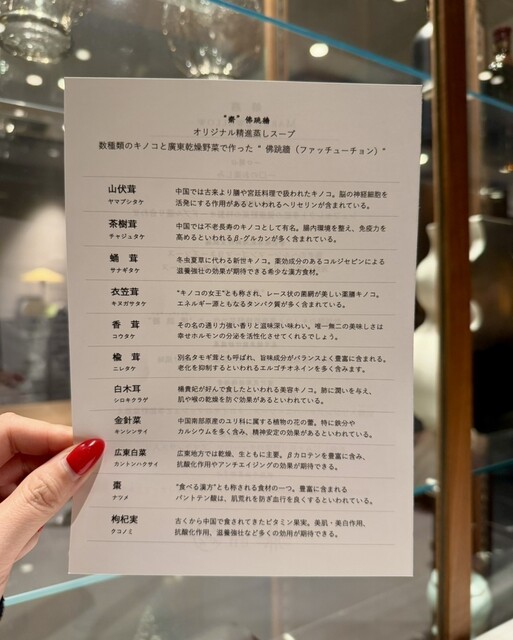 "齋" 佛跳牆
オリジナル精進蒸しスープ
数種類のキノコと廣東乾燥野菜で作った "佛跳牆（ファッチューチョン）"
山伏茸
ヤマブシタケ
中国では古来より膳や宮廷料理で扱われたキノコ。脳の神経細胞を
活発にする作用があるといわれるヘリセリンが含まれている。
茶樹茸
チャジュタケ
中国では不老長寿のキノコとして有名。腸内環境を整え、免疫力を
高めるといわれるβ-グルカンが多く含まれている。
蛹 茸
サナギタケ
冬虫夏草に代わる新世キノコ。薬効成分のあるコルジセピンによる
滋養強壮の効果が期待できる希少な漢方食材。
衣笠茸
キヌガサタケ
"キノコの女王"とも称され、レース状の菌網が美しい薬膳キノコ。
エネルギー源ともなるタンパク質が多く含まれている。
香 茸
コウタケ
その名の通り力強い香りと滋味深い味わい。唯一無二の美味しさは
幸せホルモンの分泌を活性化させてくれるでしょう。
楡 茸
ニレタケ
別名タモギ茸とも呼ばれ、旨味成分がバランスよく豊富に含まれる。
老化を抑制するといわれるエルゴチオネインを多く含みます。
白木耳
シロキクラゲ
楊貴妃が好んで食したといわれる美容キノコ。肺に潤いを与え、
肌や喉の乾燥を防ぐ効果があるといわれている。
金針菜
キンシンサイ
中国南部原産のユリ科に属する植物の花の蕾。特に鉄分や
カルシウムを多く含み、精神安定の効果があるといわれている。
広東白菜
カントンハクサイ
広東地方では乾燥、生ともに主要。βカロテンを豊富に含み、
抗酸化作用やアンチエイジングの効果が期待できる。
棗
ナツメ
"食べる漢方"とも称される食材の一つ。豊富に含まれる
パントテン酸は、肌荒れを防ぎ血行を良くするといわれている。
枸杞実
クコノミ
古くから中国で食されてきたビタミン果実。美肌・美白作用、
抗酸化作用、滋養強壮など多くの効用が期待できる。